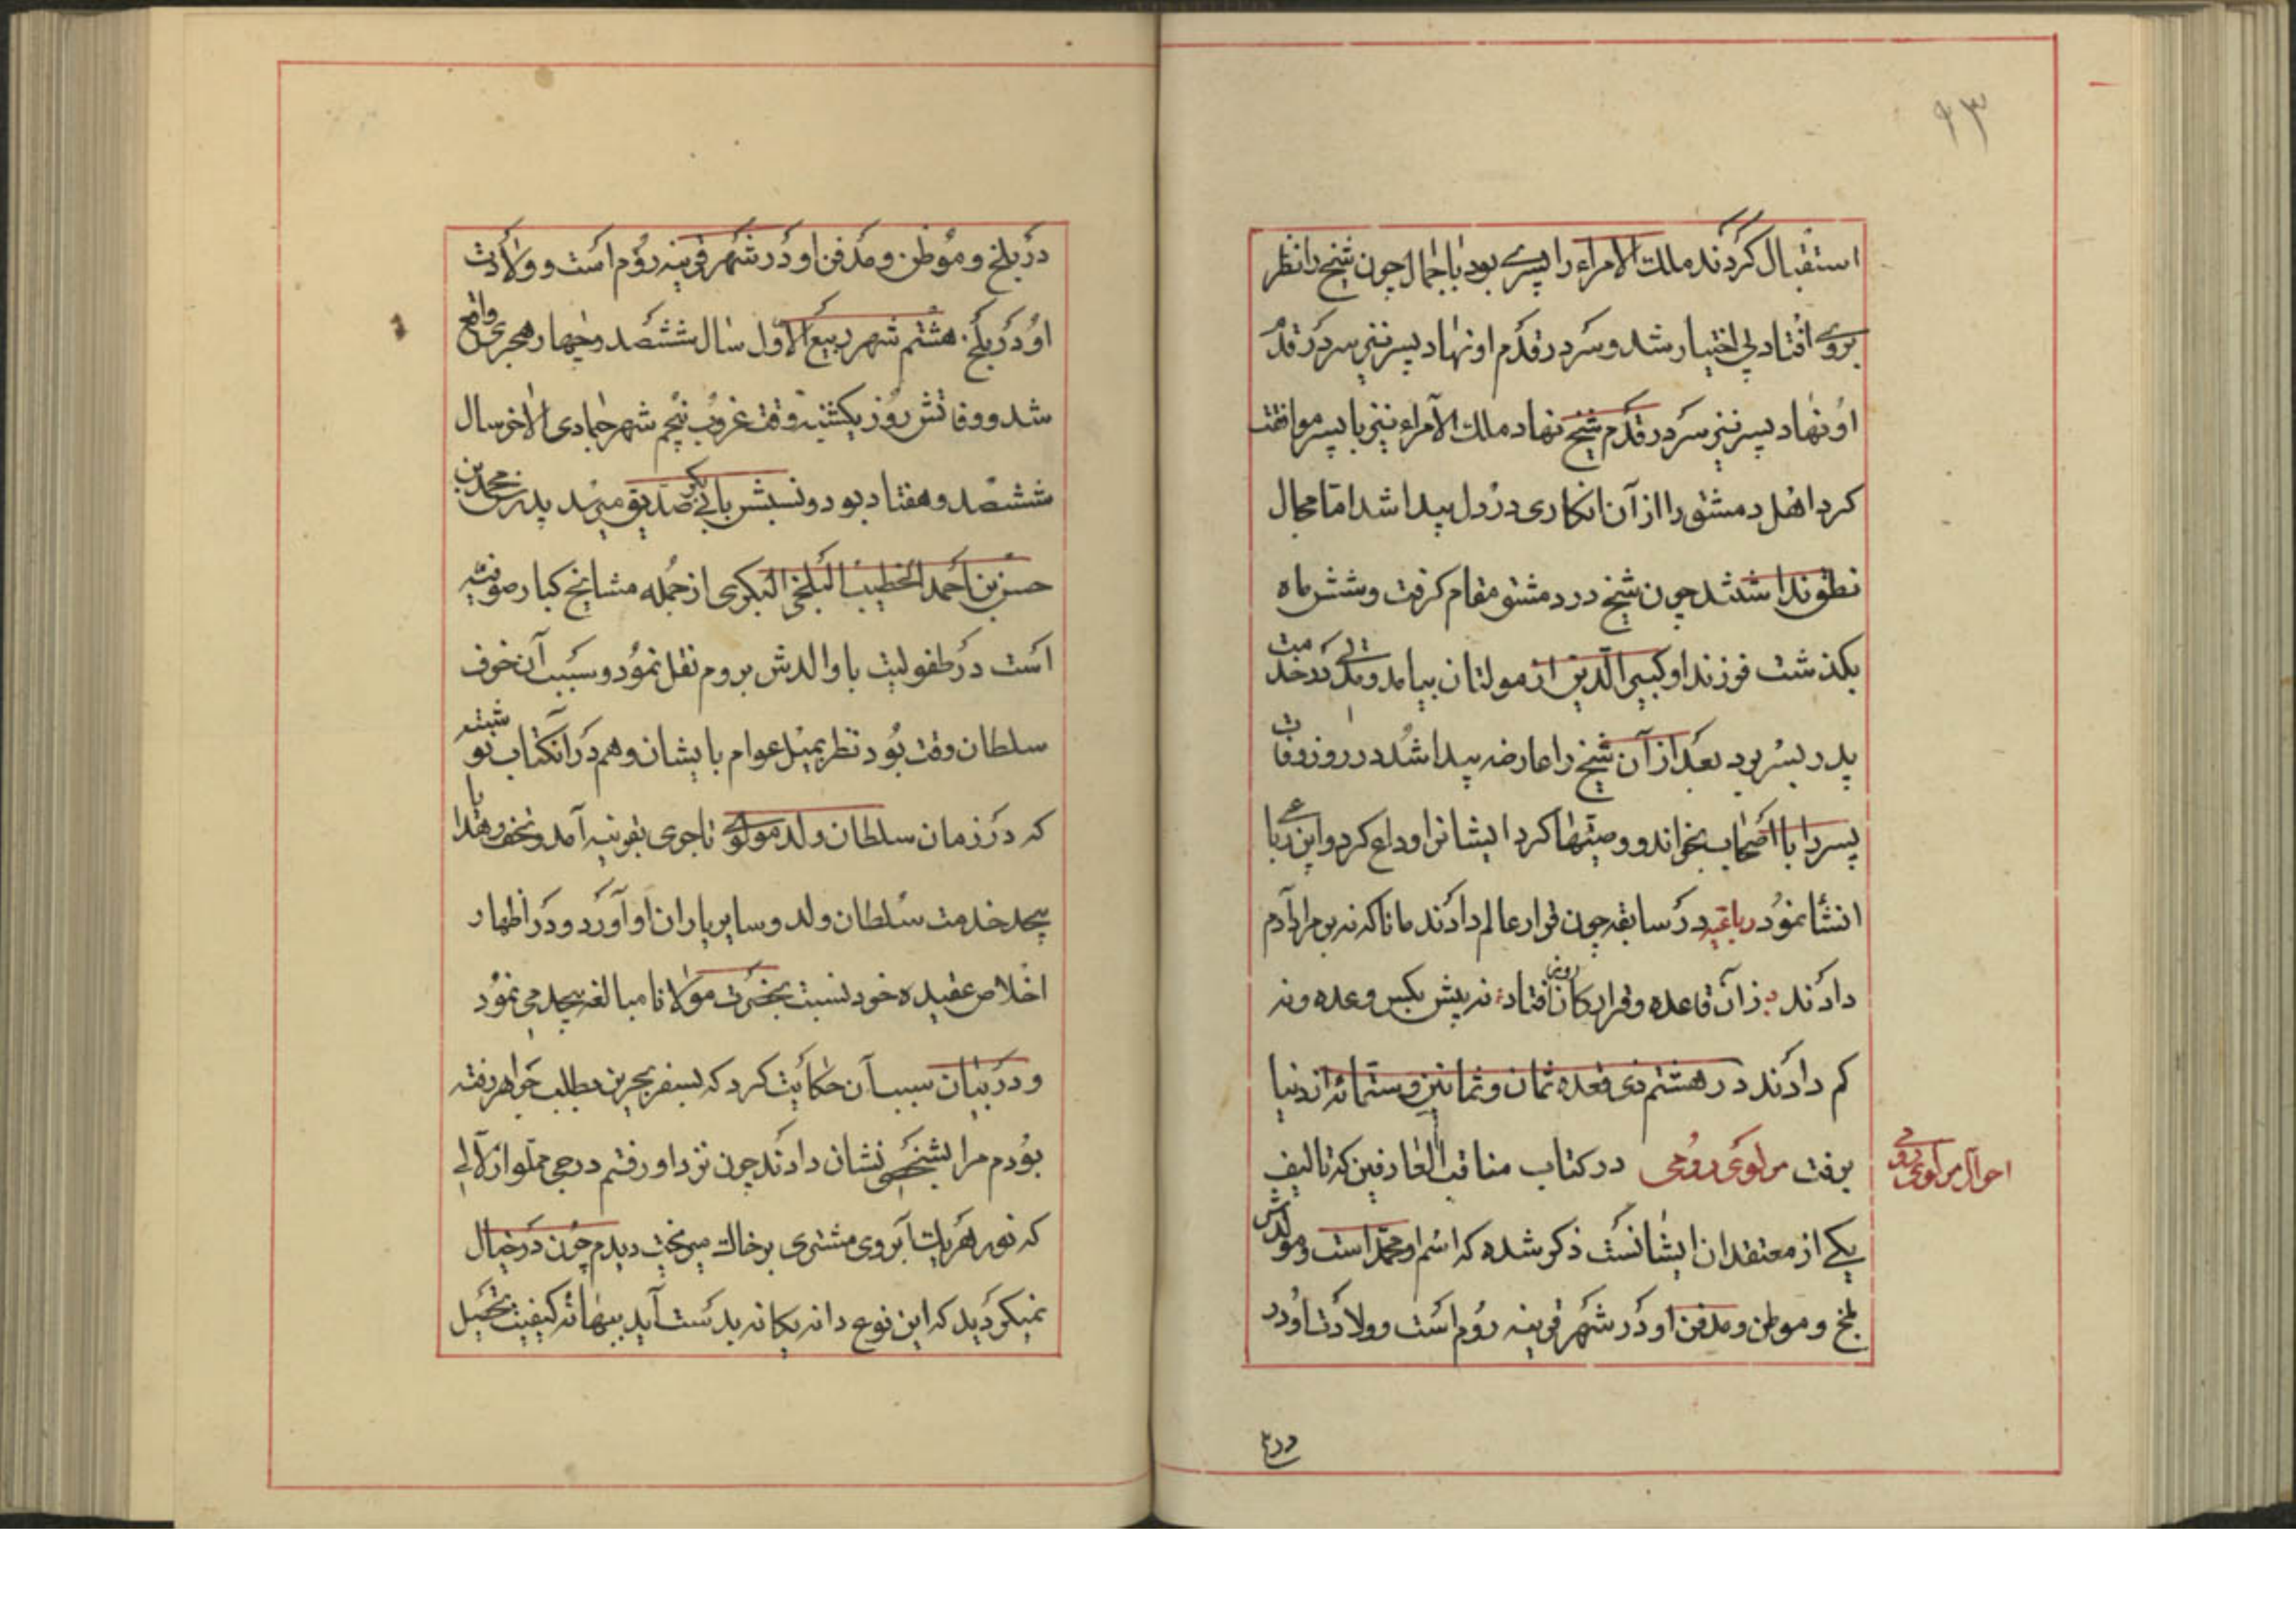 ۹۳
استقبال کردند ملک الامراء را پسری بود با جمال چون شیخ را نظر
بروی افتاد بی اختیار شد و سر در قدم او نهاد پسر نیز سر در قدم
او نهاد پسر نیز سر در قدم شیخ نهاد ملک الامراء نیز با پسر موافقت
کرد اهل دمشق را از آن انکاری در دل پیدا شد اما مجال
نطق نداشتند چون شیخ در دمشق مقام کرفت و شش ماه
بکذشت فرزند او کبیر الدین از مولتان بیامد و مدتی در خدمت
پدر بسر برد بعد از آن شیخ را عارضه پیدا شد در روز وفات
پسر را با اصحاب بخواند و وصیتها کرد ایشانرا وداع کرد و این رباعی
انشا نمود رباعیه در سابقه چون قرار عالم دادند مانا که نه بر مراد آدم
دادند زان قاعده و قرار کانروز افتاد نه بیش بکس وعده و نه
کم دادند در هشتم ذی قعده ثمان و ثمانین و ستمائه از دنیا
برفت مولوی رومی در کتاب مناقب العارفین که تالیف
احوال مولوی رومی
یکی از معتقدان ایشانست ذکر شده که اسم او محمد است و مولدش
بلخ و موطن و مدفن او در شهر قونیه روم است و ولادت او در
در بلخ و موطن و مدفن او در شهر قونیه روم است و ولادت
او در بلخ هشتم شهر ربیع الاول سال ششصد و چهار هجری واقع
شد و وفاتش روز یکشنبه وقت غروب پنجم شهر جمادی الاخر سال
ششصد و هفتاد بود و نسبش بابی بکر صدیق میرسد پدرش محمد بن
حسن بن احمد الخطیب البلخی البکری از جمله مشایخ کبار صوفیه
است در طفولیت با والدش بروم نقل نمود و سبب آن خوف
سلطان وقت بود نظر بمیل عوام با یشان و هم در آنکتاب نوشته
که در زمان سلطان ولد مولوی تاجری بقونیه آمد و تحف و هدایا
بیحد خدمت سلطان ولد و سایر یاران او آورد و در اظهار
اخلاص عقیده خود نسبت بحضرت مولانا مبالغه بیحد می نمود
و در بیان سبب آن حکایت کرد که بسفر بحرین بطلب جواهر رفته
بودم مرا بشخصی نشان دادند چون نزد او رفتم درجی مملو از لآلی
که نور هر یک آبروی مشتری بر خاک میریخت دیدم چون در خیال
نمیکردید که این نوع دانه یکانه بدست آید ببهانه کیفیت تحصیل